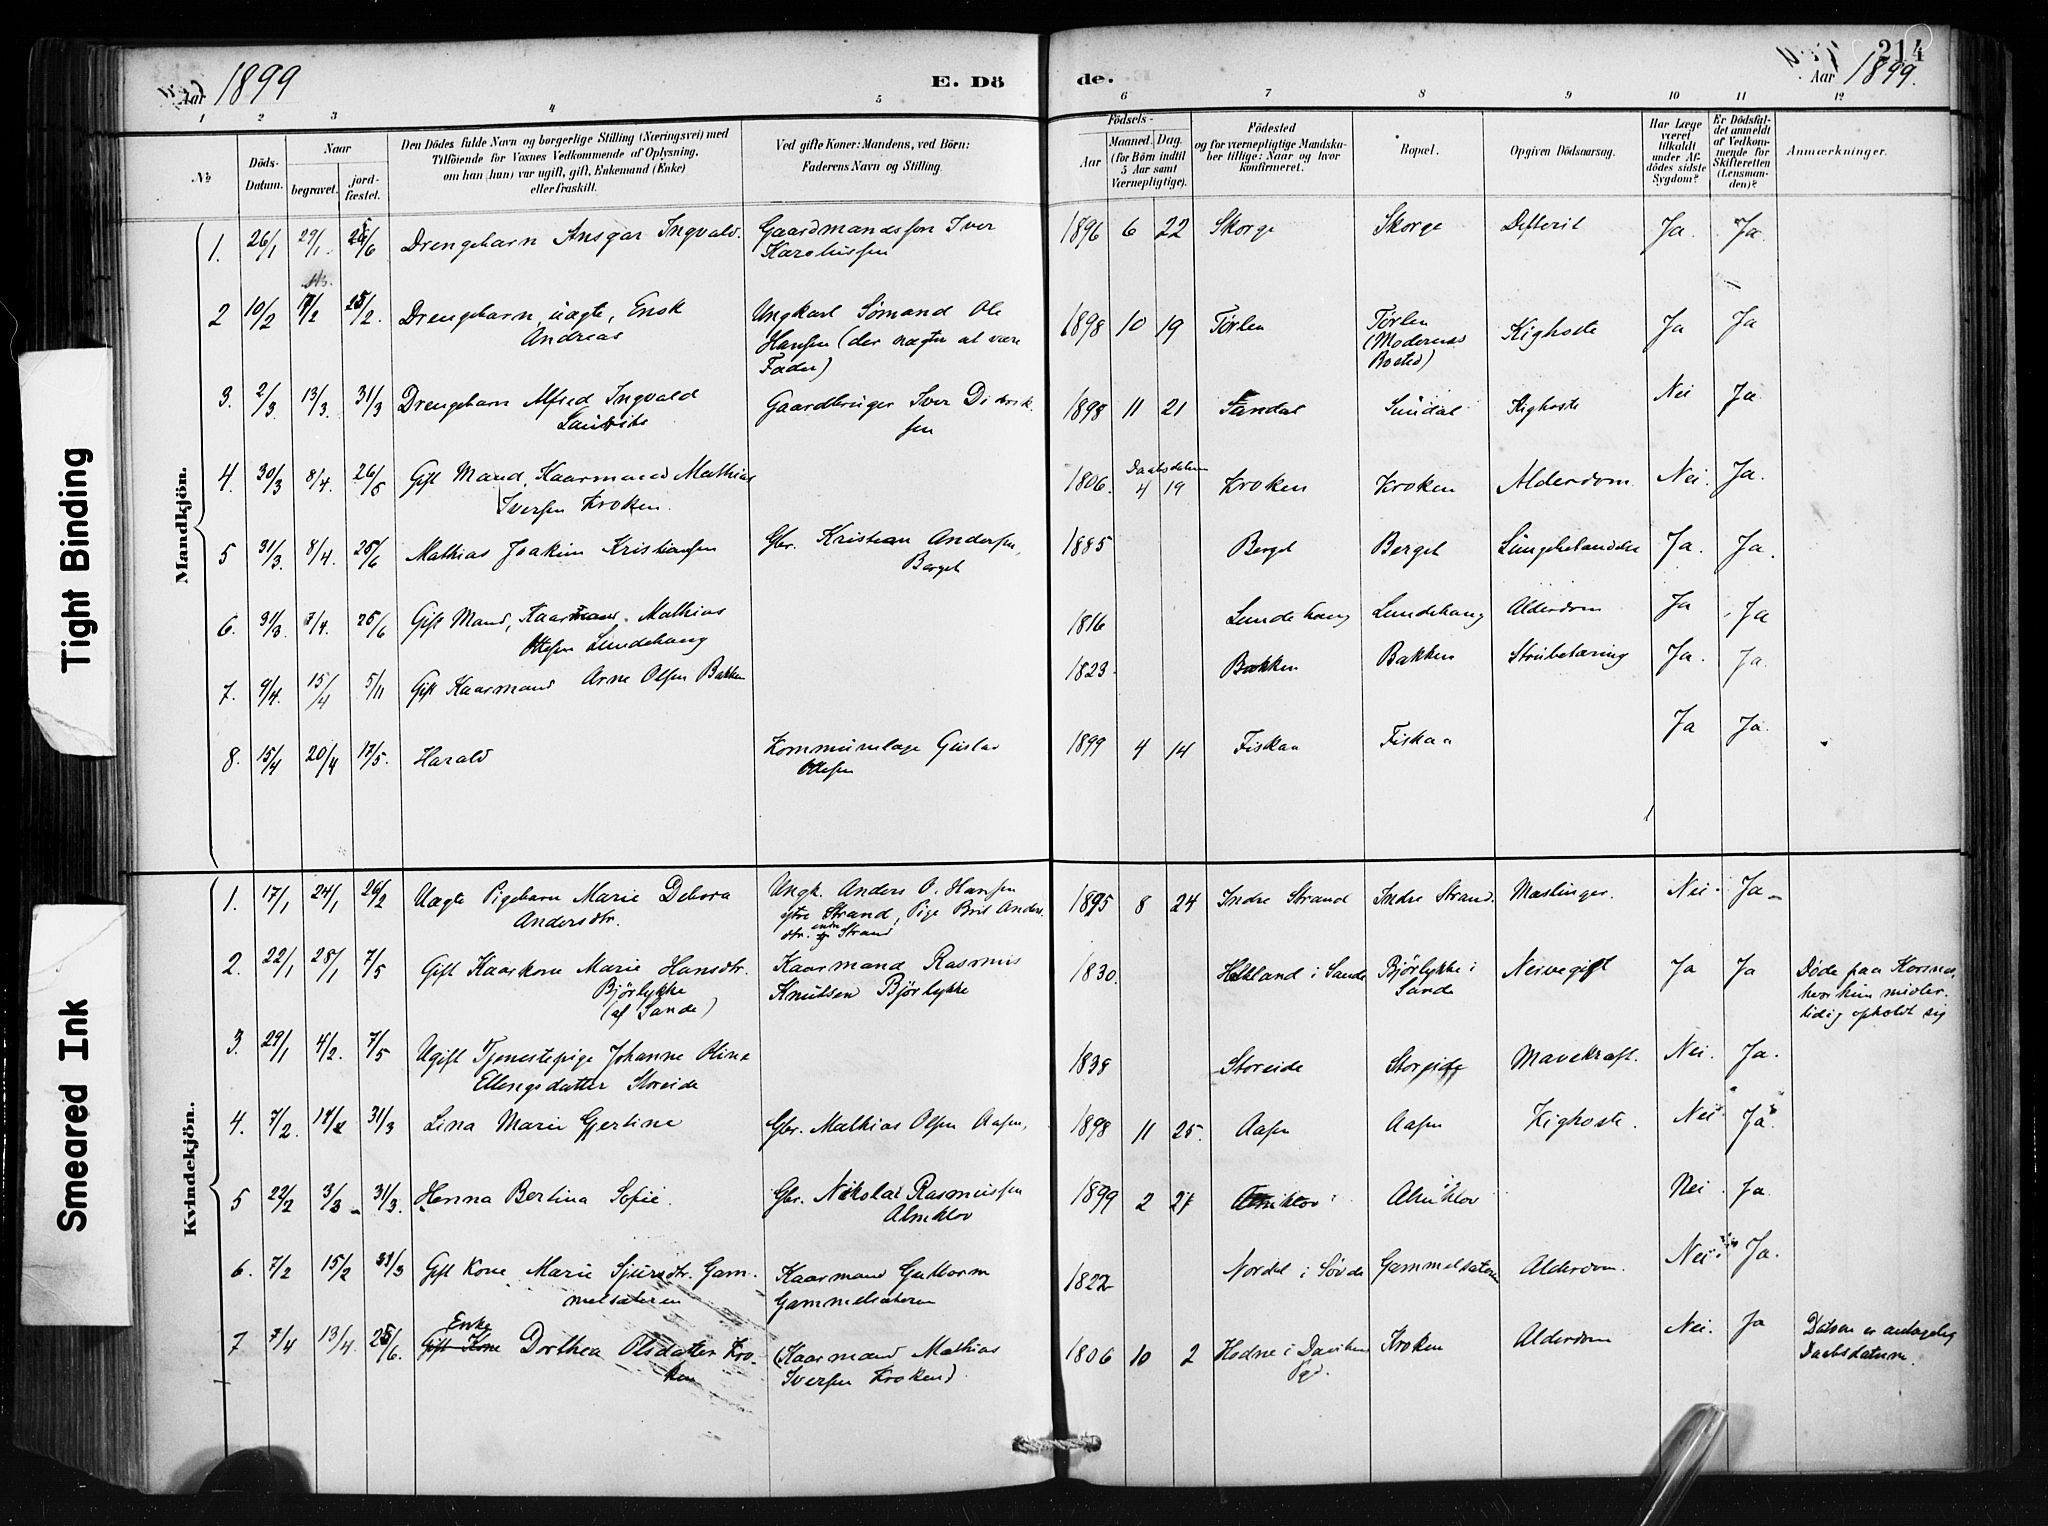 Aar 1899
E. Dö
de.
214
Aar 1899.
1 2 3 4 5 6 7 8 9 10 11 12
№
Döds-
Datum.
Naar
begravet.
jord-
fæstet.
Den Dödes fulde Navn og borgerlige Stilling (Næringsvei) med
Tilföiende for Voxnes Vedkommende af Oplysning,
om han (hun) var ugift, gift, Enkemand (Enke)
eller fraskilt.
Ved gifte Koner: Mandens, ved Börn:
Faderens Navn og Stilling.
Födsels-
Aar
Maaned. Dag.
(for Börn indtil
5 Aar samt
Værnepligtige).
Födested
og for værnepligtige Mandska-
ber tillige: Naar og hvor
konfirmeret.
Bopæl.
Opgiven Dödsaarsag.
Har Læge
været
tilkaldt
under Af-
dödes sidste
Sygdom?
Er Dödsfal-
det anmeldt
af Vedkom-
mende for
Skifteretten
(Lensman-
den)?
Anmærkninger.
Tight Binding
Smeared Ink
Mandkjön.
1. 26/1 29/1 /6 Drengebarn Ansgar Ingvald. Gaardmandssøn Iver 1896 6 22 Skorge Skorge Difterit Ja. Ja.
Karolussen
2 10/2 /2 25/2. Drengebarn, uægte, Ensk Ungkarl Sømand Ole 1898 10 19 Tørlen Tørlen Kighoste Ja Ja
Andreas Hansen (der nægter at være (Moderens
Fader) Bosted)
3. 2/3 13/3. 31/3 Drengebarn Alfred Ingvald Gaardbruger Iver Didrik- 1898 11 21 Sundal Kighoste Nei Ja
sen
4. 30/3 8/4. 26/5 Gift Mand, Kaarmand Mathias 1806. Daabsdatum Kroken Kroken Alderdom. Nei. Ja.
Iversen Kroken. 4 19
5 31/3. 8/4. 25/6 Mathias Joakim Kristiansen Gbr. Kristian Andersen, 1885 Berget Berget Lungebetændelse Ja. Ja.
Berget
6. 31/3 /4. 25/6 Gift Mand, Kaarmand. Mathias 1816 Lundehaug Lundehaug Alderdom Ja Ja
Ottesen Lundehaug
7. 9/4. 15/4 5/11 Gift Kaarmand Arne Olsen Bakken 1823 Bakken Bakken Strubetæring Ja. Ja.
8. 15/4 20/4 17/5. Harald Kommunelæge Gustav 1899 4 14 Fiskaa Fiskaa Ja Ja.
Ottesen
Kvindekjön.
1. 17/1 24/1 26/2 Uægte Pigebarn Marie Debora Ungk. Anders O. Hansen 1895 8 24 Indre Strand Indre Strand. Mæslinger. Nei. Ja
Andersdtr. ytre Strand, Pige Brit Anders-
dtr. indre Strand
2. 22/1 28/1 7/5 Gift Kaarkone Marie Hansdtr. Kaarmand Rasmus 1830. i Sande Bjørlykke i Ja Ja Døde paa Korsnes,
Bjørlykke Knutsen Bjørlykke Sande hvor hun midler-
(af Sande) tidig opholdt sig
3. 29/1 4/2. 7/5 Ugift Tjenestepige Johanne Oline 1838 Storeide Storeide Mavekræft. Nei. Ja.
Ellengsdatter Storeide
4. 7/2. 31/3 Lina Marie Gjertine Gbr. Mathias Olsen Aasen, 1898 11 25. Aasen Aasen Kighoste. Nei Ja.
5 22/2 3/3 31/3. Henna Bertina Sofie. Gbr. Nikolai Rasmussen 1899 2 Almklov Almklov Nei Ja.
Almklov
6. 7/2 15/2 31/3 Gift Kone Marie Sjursdtr. Gam- Kaarmand Guttorm 1822 Nordal i Søvde Gammelsæteren Alderdom. Nei Ja.
melsæteren Gammelsæteren
7 7/4 13/4. 25/6. Enke Dorthea Olsdatter Kro- (Kaarmand Mathias 1806 10 2 Hodne i Daviken Kroken Alderdom Nei. Ja Datoen er antagelig
Gift Kone ken Iversen Kroken). Pgd. Daabsdatum.